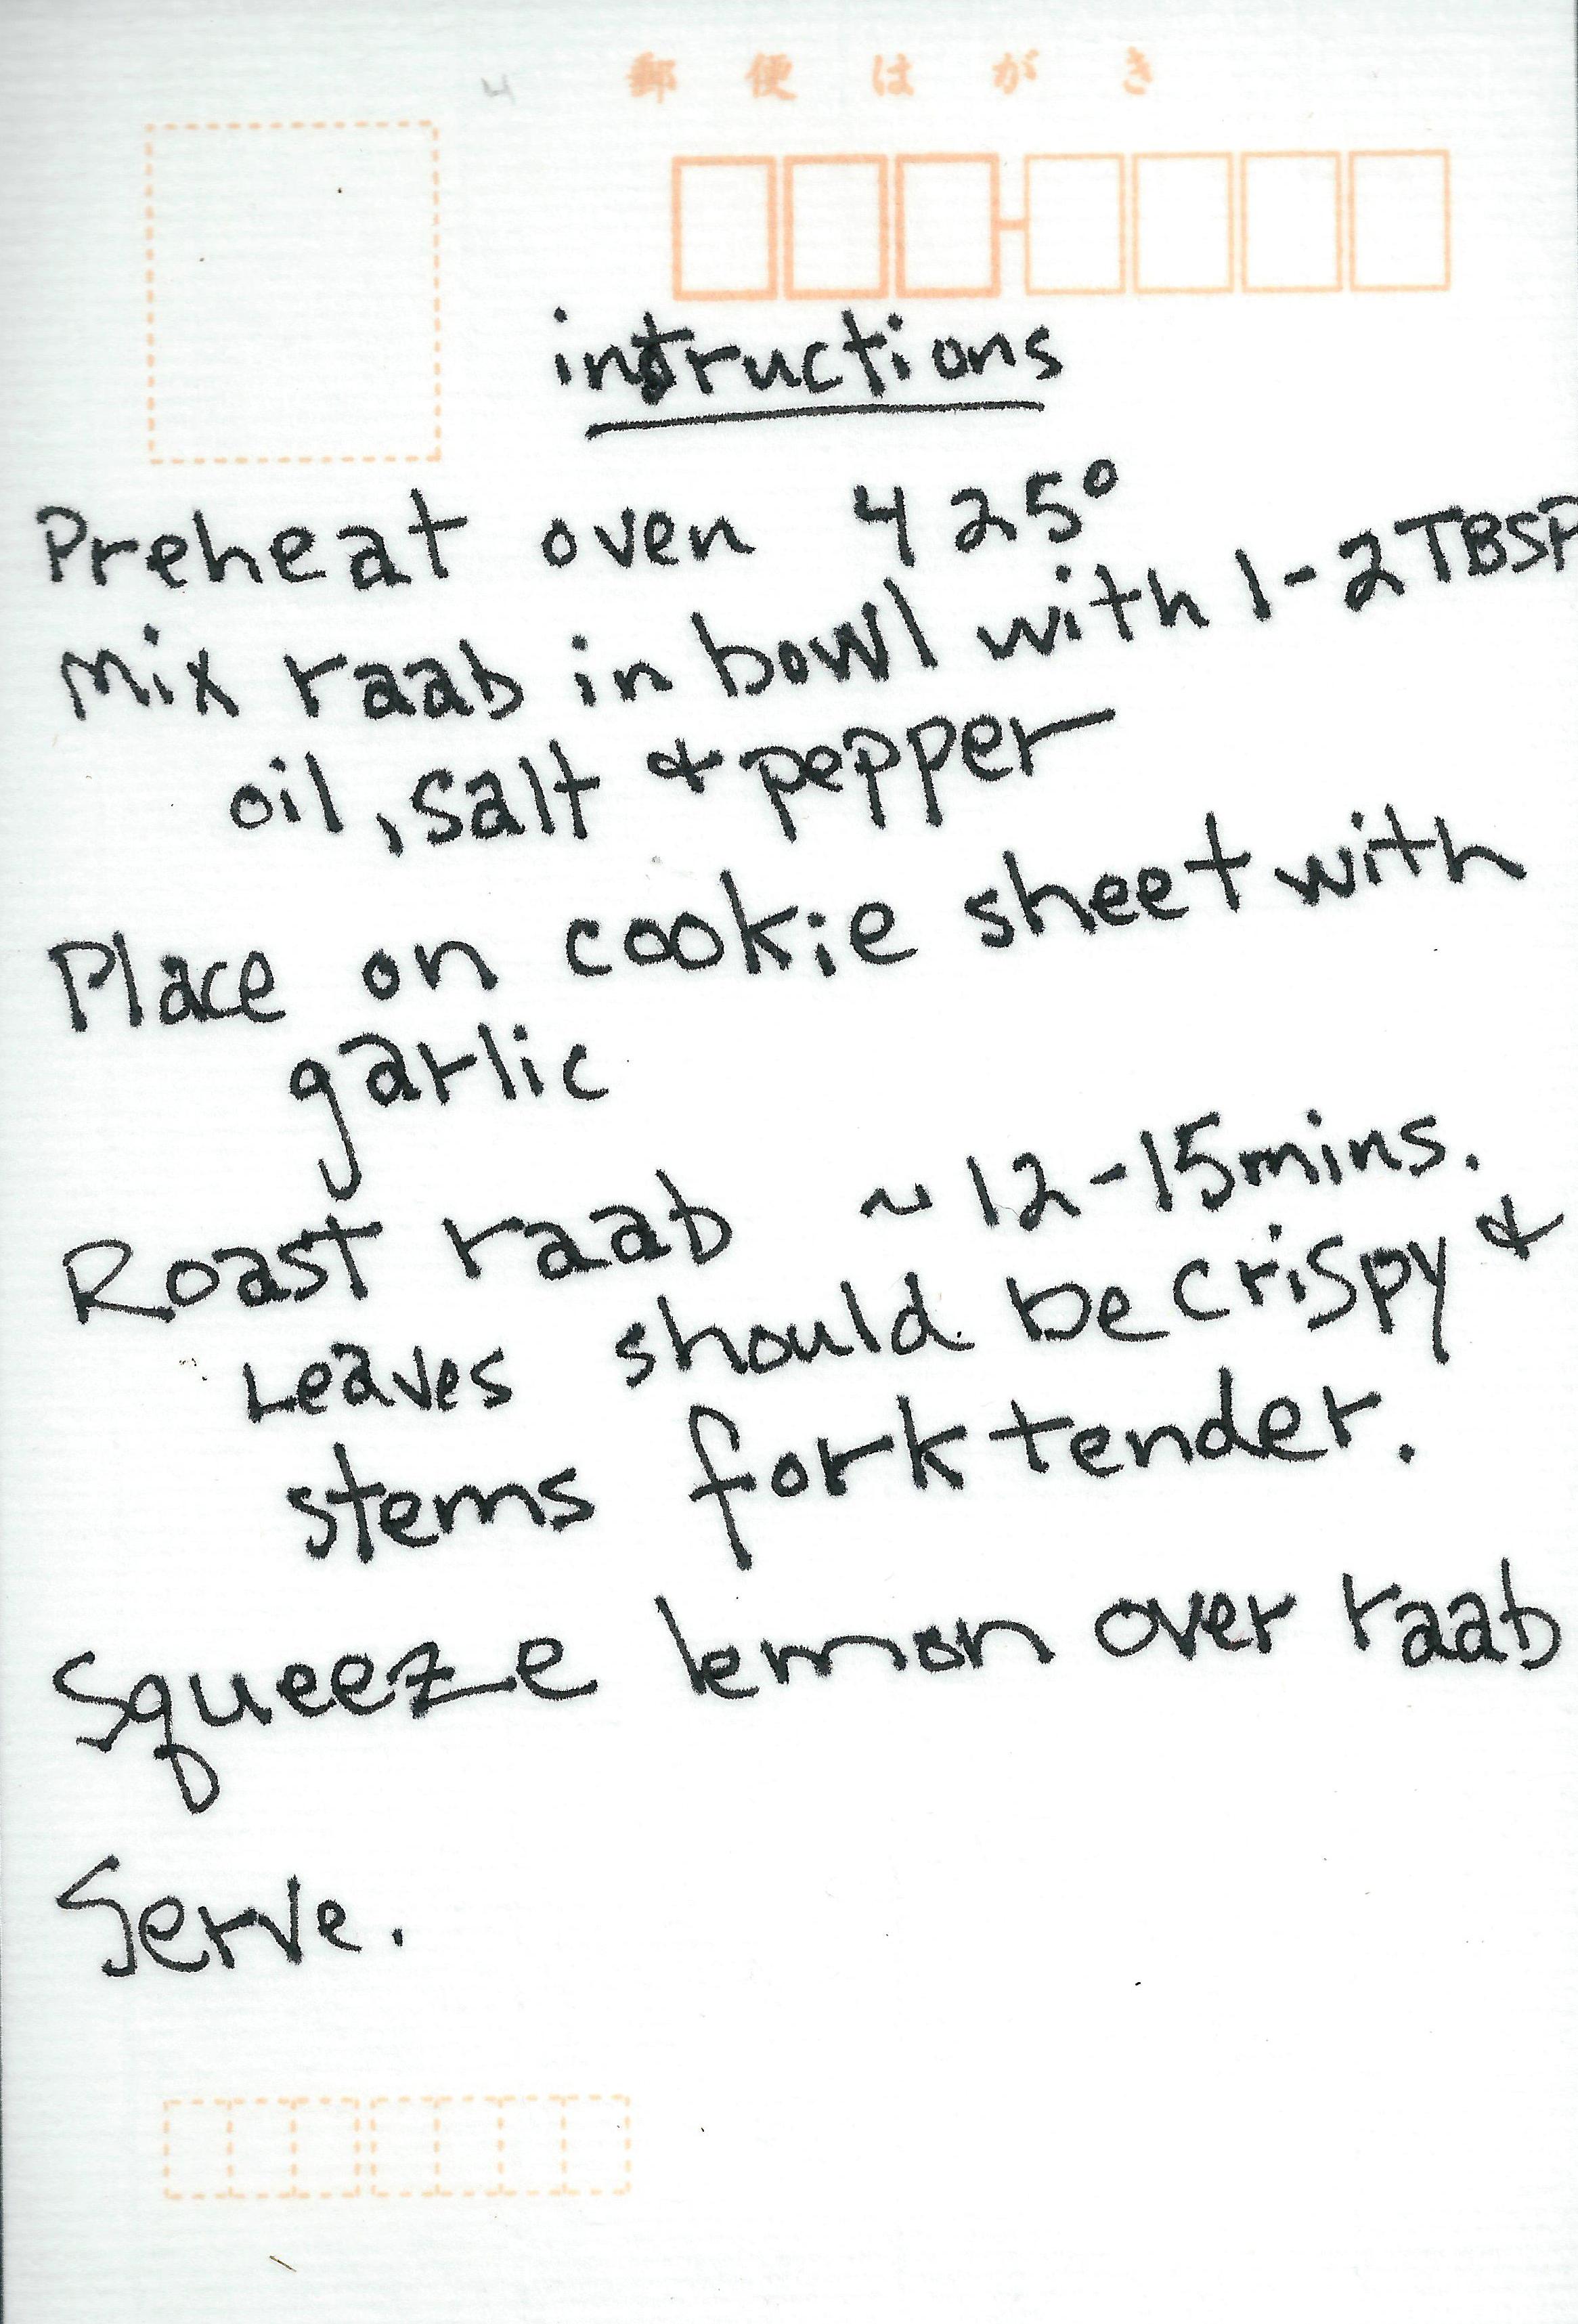 郵便はがき
instructions
Preheat oven 425°
Mix raab in bowl with 1-2 TBSP
oil, salt & pepper
Place on cookie sheet with
garlic
Roast raab ~ 12-15 mins.
Leaves should be crispy &
stems fork tender.
Squeeze lemon over raab
Serve.